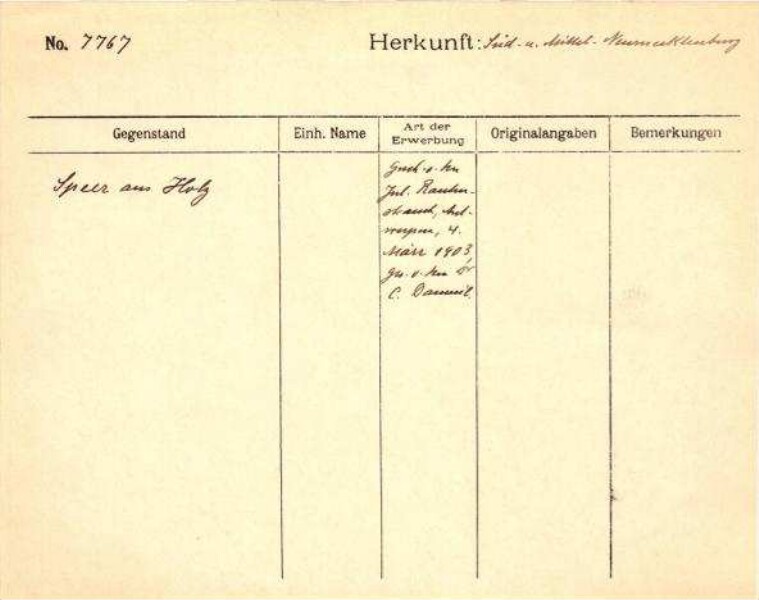 No. 7767
Herkunft: Süd- u. Mittel-Neumecklenburg
Gegenstand
Einh. Name
Art der
Erwerbung
Originalangaben
Bemerkungen
Speer aus Holz
Gesch. v. Hrn
Jul. Rauten-
strauch, Ant-
werpen, 4.
März 1903,
v. Hrn Dr
C. Dammil.